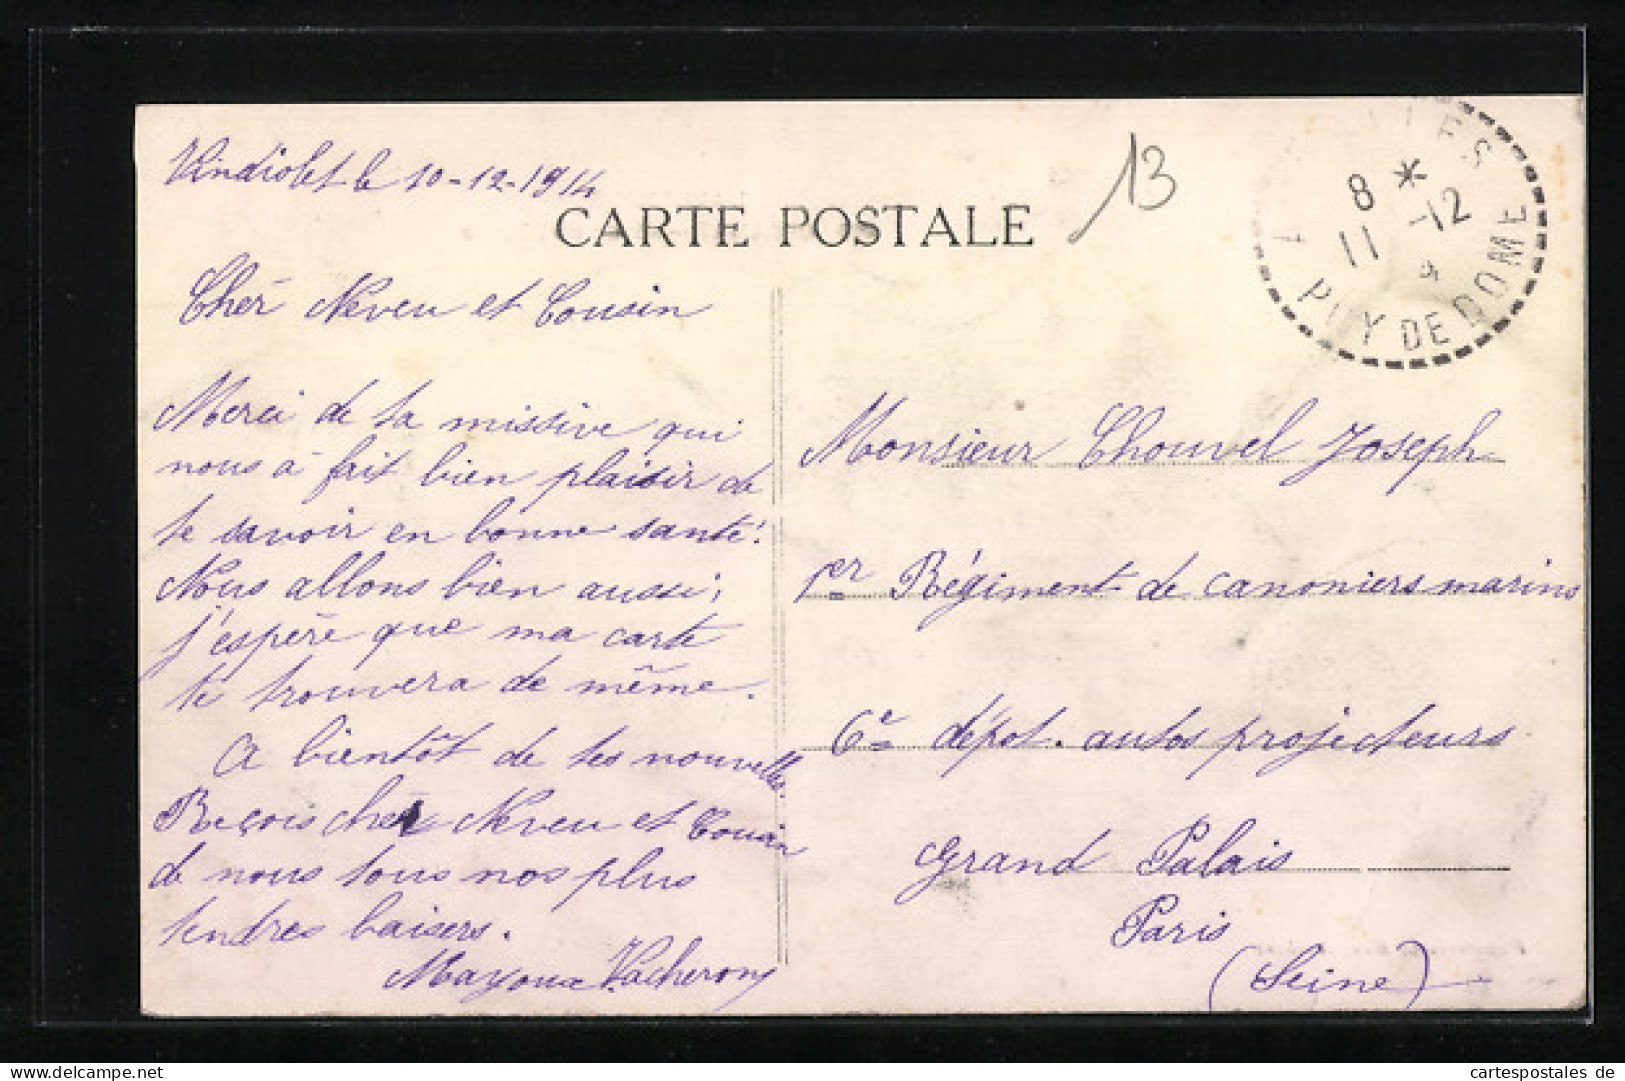 Vindiolet le 10-12-1914
CARTE POSTALE
13
8 *
11 -12
PUY DE DOME
Cher Neveu et Cousin
Merci de ta missive qui
nous a fait bien plaisir de
te savoir en bonne santé!
Nous allons bien aussi;
j'espère que ma carte
te trouvera de même.
A bientôt de tes nouvelles.
Reçois cher Neveu et Cousin
de nous tous nos plus
tendres baisers.
Mayoux Vacheron
Monsieur Chouvel Joseph
1er Régiment de canoniers marins
6e dépot. autos projecteurs
Grand Palais
Paris
(Seine)
cartespostales de